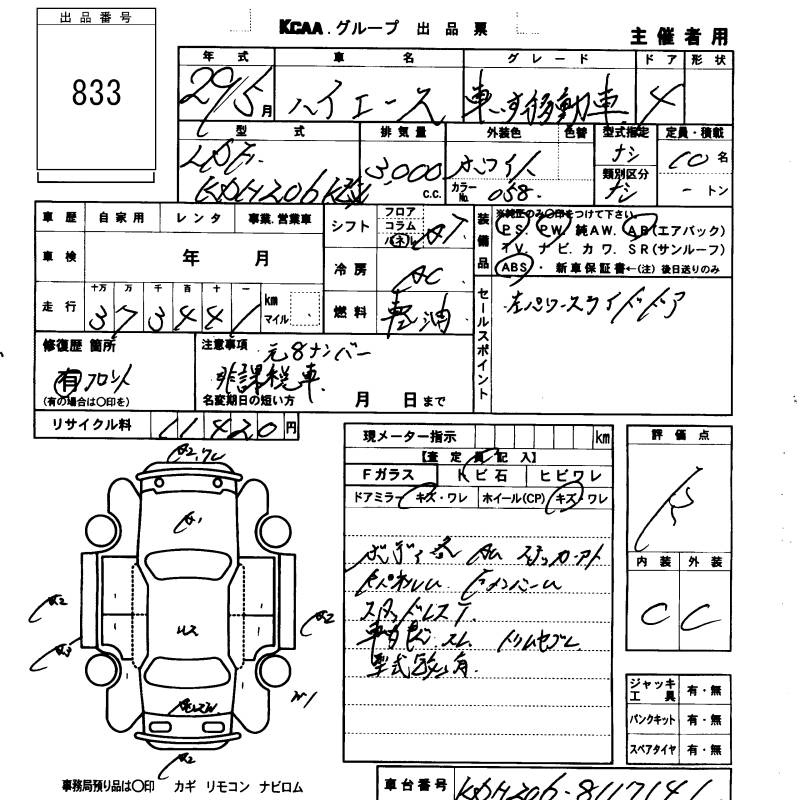 出品番号
833
KCAA.グループ 出品票
主催者用
年式 車名 グレード ドア 形状
29/5月 ハイエース 車いす移動車 4
型式 排気量 外装色 色替 型式指定 定員・積載
LDF- 3,000 c.c. ホワイト ナシ 10名
類別区分
カラーNo. 058 ナシ -トン
KDH206K改
車歴 自家用 レンタ 事業.営業車
シフト フロア コラム パネル AT
装備品 ※純正のみ〇印をつけて下さい。
PS. PW. 純AW. AB(エアバック)
TV. ナビ. カワ. SR(サンルーフ)
ABS・ 新車保証書←(注)後日送りのみ
車検 年 月
冷房 AC
走行 十万 万 千 百 十 一
373441 km マイル
燃料 軽油
セールスポイント 左パワースライドドア
修復歴 箇所
有 フロント
(有の場合は〇印を)
注意事項 元8ナンバー
非課税車
名変期日の短い方 月 日まで
リサイクル料 11420円
現メーター指示 km
【査定員記入】
Fガラス トビ石 ヒビワレ
ドアミラー キズ・ワレ ホイール(CP) キズ・ワレ
スタッドレスT
評価点
R
内装 外装
C C
A2
A1
A2
A3
A2
A2
ジャッキ工具 有・無
パンクキット 有・無
スペアタイヤ 有・無
事務局預り品は〇印 カギ リモコン ナビロム
車台番号 KDH206-8117141